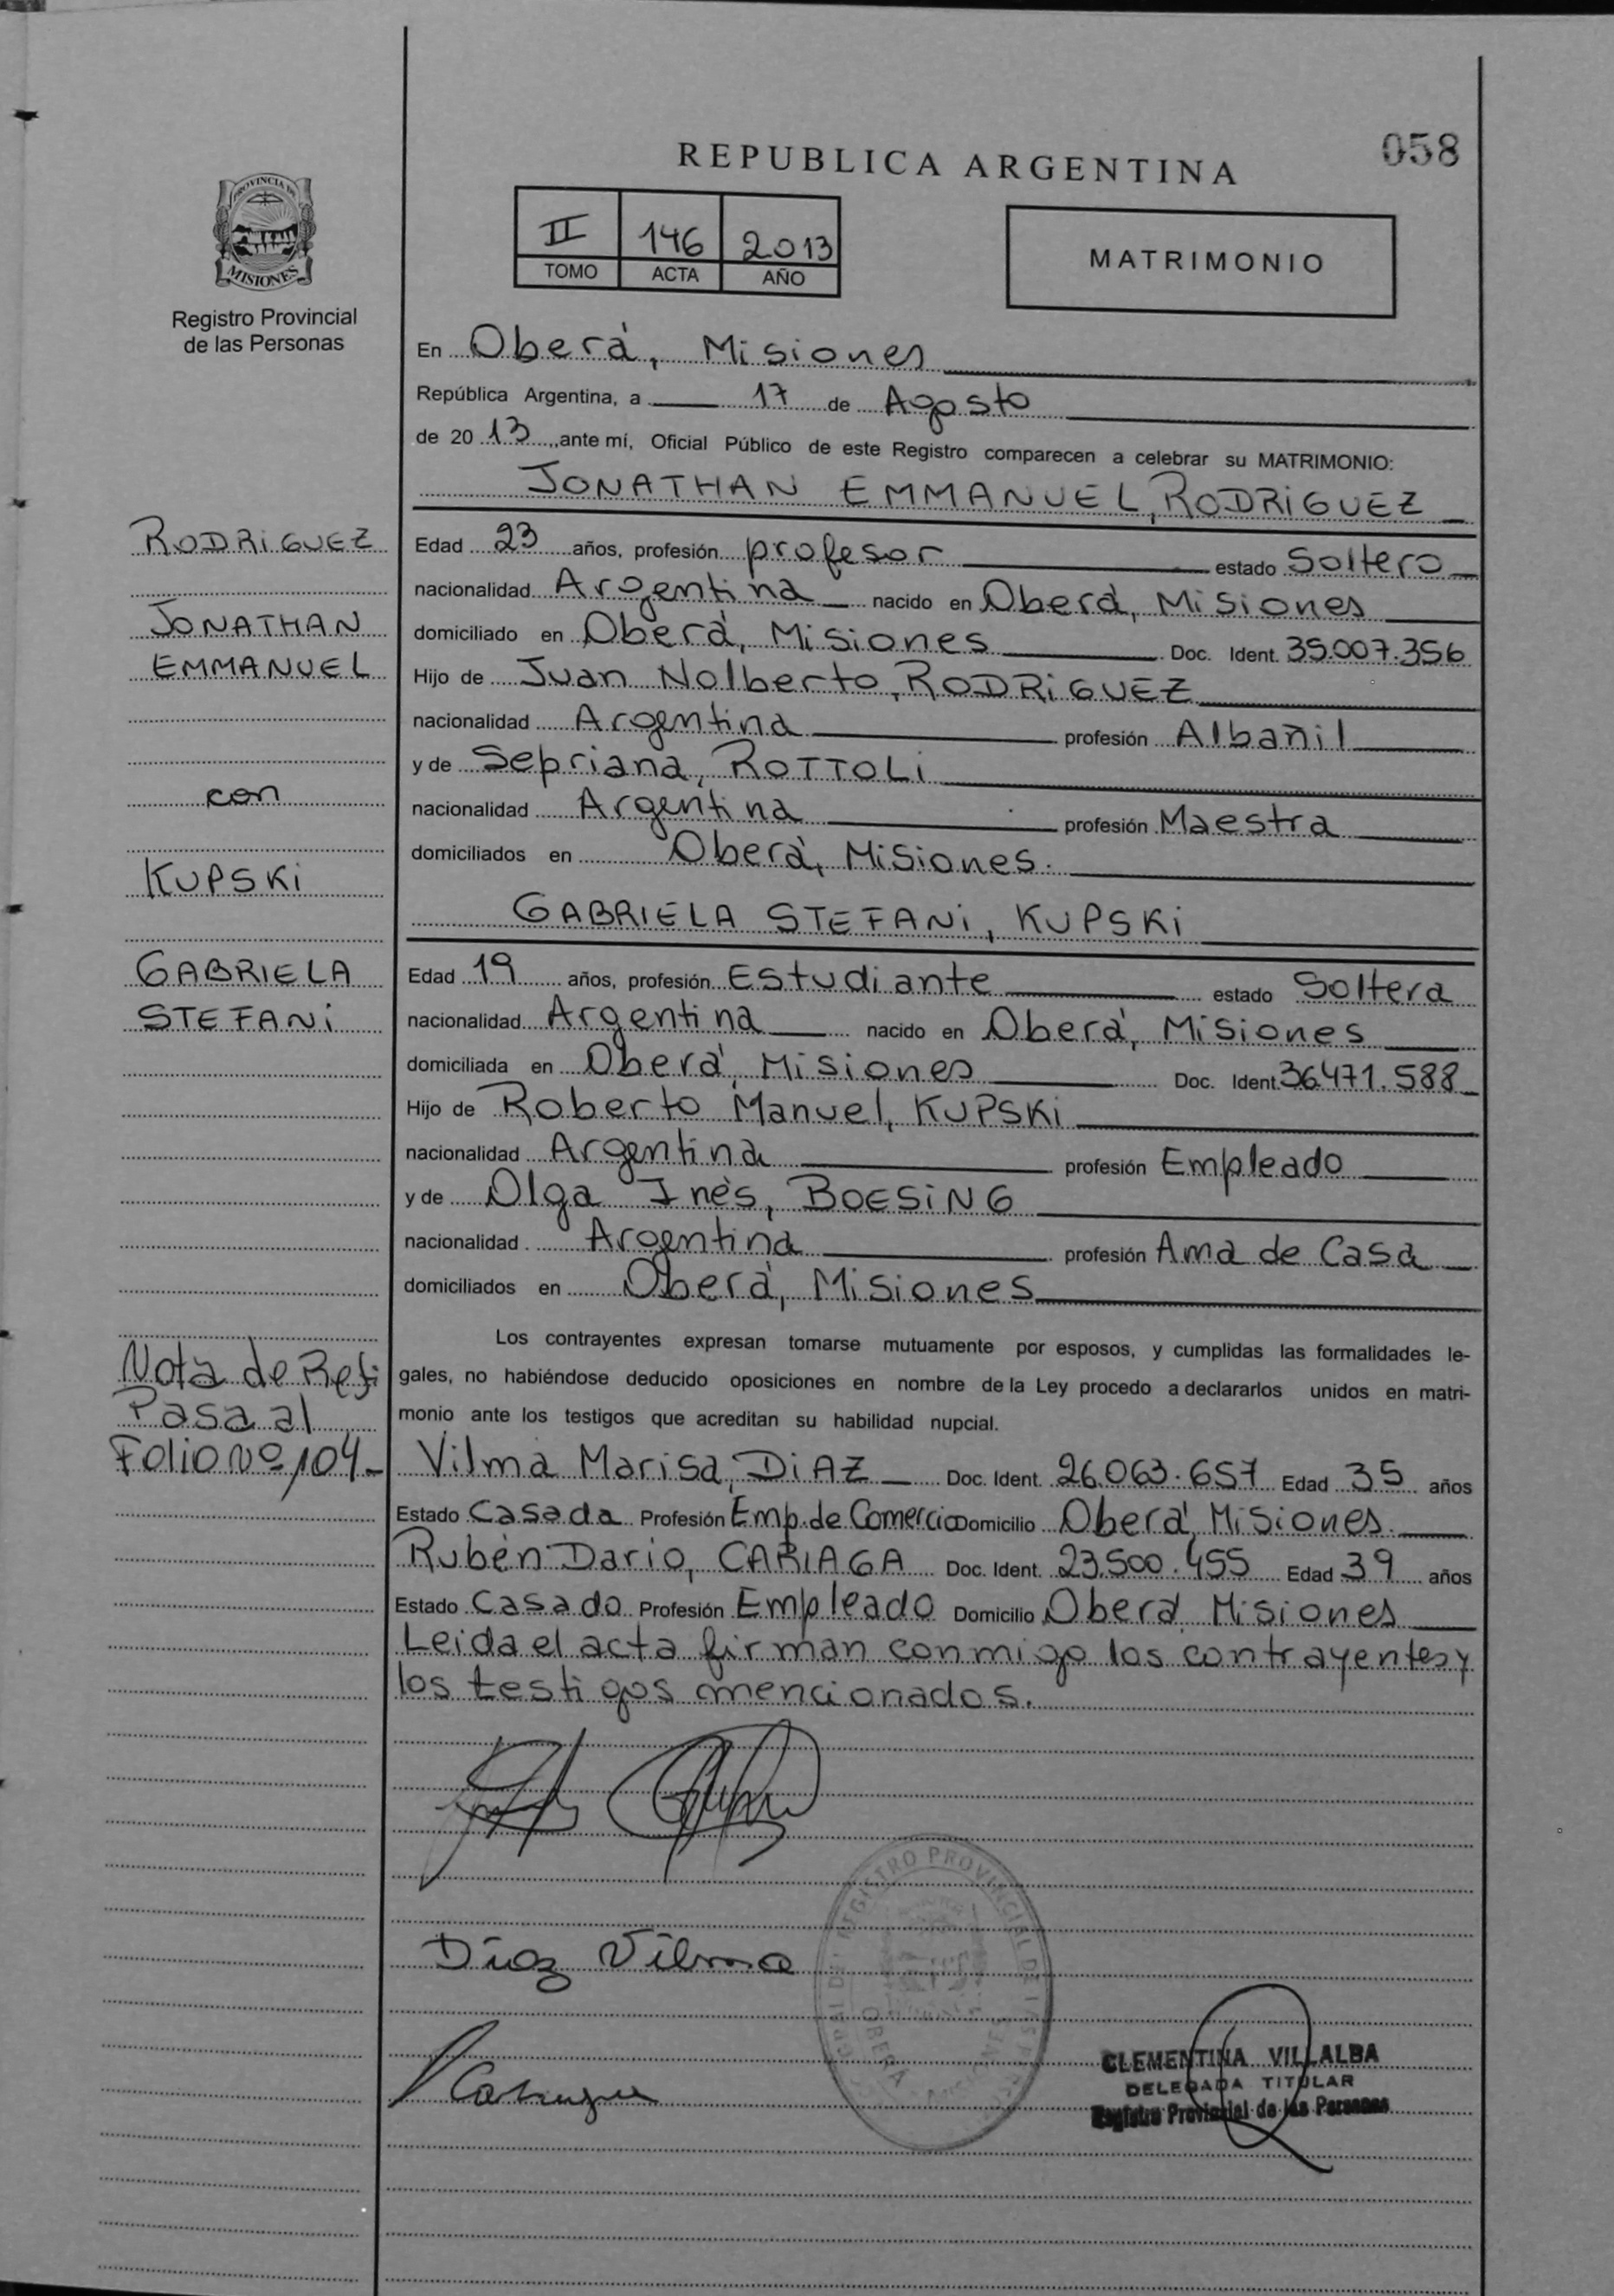 058
REPUBLICA ARGENTINA
PROVINCIA DE
MISIONES
Registro Provincial
de las Personas
II 146 2013
TOMO ACTA AÑO
MATRIMONIO
En Oberá, Misiones
República Argentina, a 17 de Agosto
de 2013, ante mí, Oficial Público de este Registro comparecen a celebrar su MATRIMONIO:
JONATHAN EMMANUEL, RODRiGUEZ
RODRiGUEZ
JONATHAN
EMMANUEL
con
KUPSKi
GABRIELA
STEFANi
Edad 23 años, profesión profesor estado Soltero
nacionalidad Argentina nacido en Oberá, Misiones
domiciliado en Oberá, Misiones Doc. Ident. 35.007.356
Hijo de Juan Nolberto, RODRiGUEZ
nacionalidad Argentina profesión Albañil
y de Sepriana, ROTTOLi
nacionalidad Argentina profesión Maestra
domiciliados en Oberá, Misiones.
GABRIELA STEFANi, KUPSKi
Edad 19 años, profesión Estudiante estado Soltera
nacionalidad Argentina nacido en Oberá, Misiones
domiciliada en Oberá, Misiones Doc. Ident. 36471.588
Hijo de Roberto Manuel, KUPSKi
nacionalidad Argentina profesión Empleado
y de Olga Inés, BOESiNG
nacionalidad Argentina profesión Ama de Casa
domiciliados en Oberá, Misiones
Los contrayentes expresan tomarse mutuamente por esposos, y cumplidas las formalidades le-
gales, no habiéndose deducido oposiciones en nombre de la Ley procedo a declararlos unidos en matri-
monio ante los testigos que acreditan su habilidad nupcial.
Nota de Ref:
Pasa al
Folio Nº 104-
Vilma Marisa, DiAZ Doc. Ident. 26.063.657 Edad 35 años
Estado Casada Profesión Emp. de Comercio Domicilio Oberá, Misiones.
Rubén Dario, CARIAGA Doc. Ident. 23.500.455 Edad 39 años
Estado Casado Profesión Empleado Domicilio Oberá, Misiones
Leida el acta firman conmigo los contrayentes y
los testigos mencionados.
Díaz Vilma
REGISTRO PROVINCIAL DE LAS
OBERA
CLEMENTINA VILLALBA
DELEGADA TITULAR
Registro Provincial de las Personas